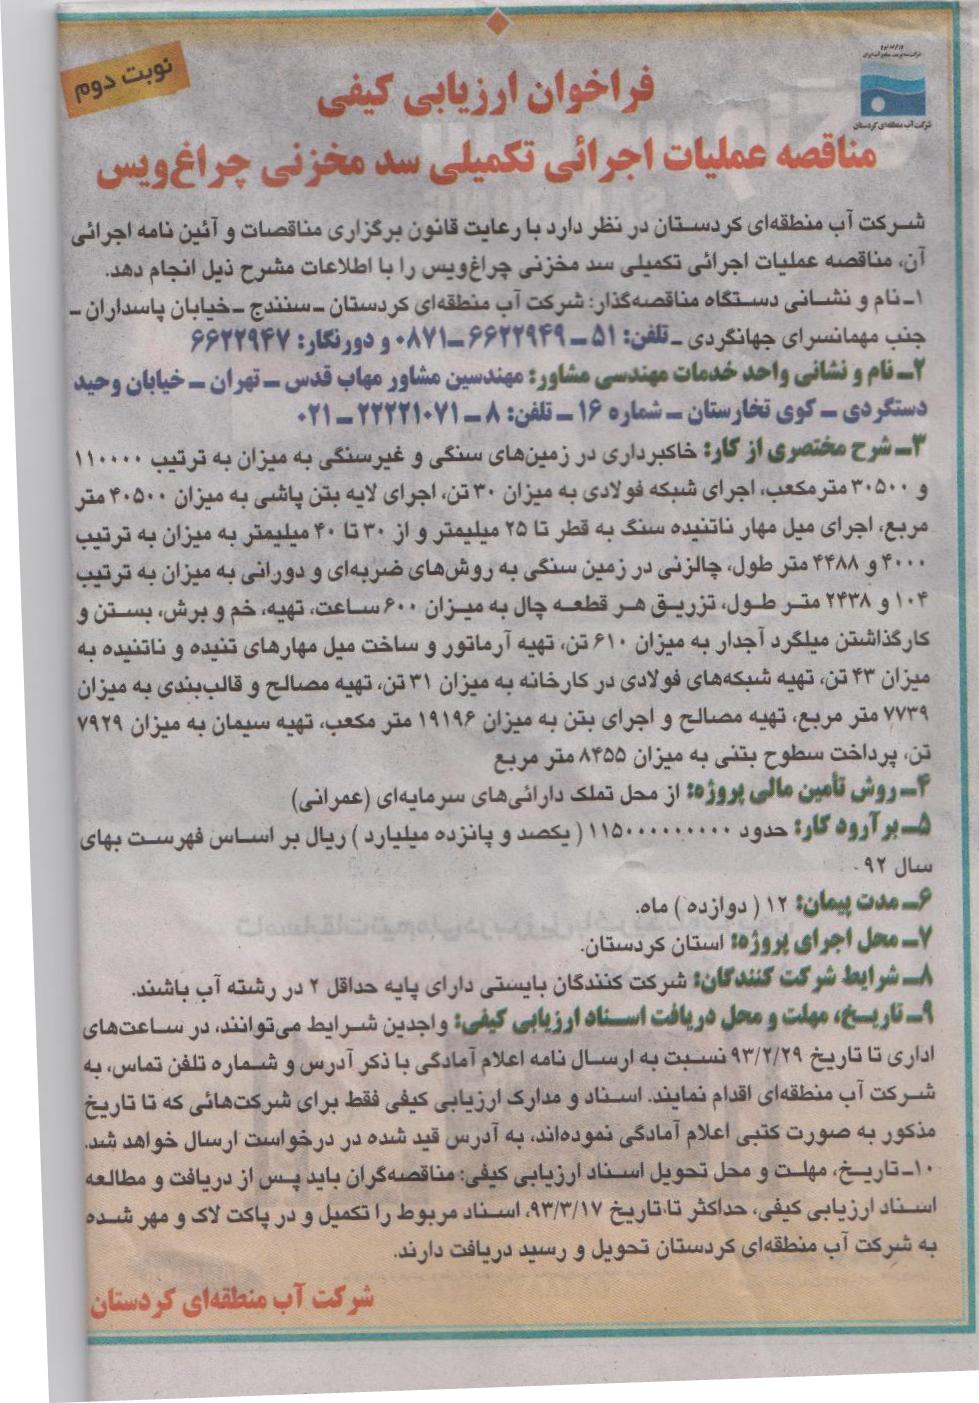 نوبت دوم
وزارت نیرو
شرکت مدیریت منابع آب ایران
شرکت آب منطقه‌ای کردستان
فراخوان ارزیابی کیفی
مناقصه عملیات اجرائی تکمیلی سد مخزنی چراغ‌ویس
شرکت آب منطقه‌ای کردستان در نظر دارد با رعایت قانون برگزاری مناقصات و آئین نامه اجرائی
آن، مناقصه عملیات اجرائی تکمیلی سد مخزنی چراغ‌ویس را با اطلاعات مشرح ذیل انجام دهد.
۱ـ نام و نشانی دستگاه مناقصه‌گذار: شرکت آب منطقه‌ای کردستان ـ سنندج ـ خیابان پاسداران ـ
جنب مهمانسرای جهانگردی ـ تلفن: ۵۱ ـ ۶۶۲۲۹۴۹ ـ ۰۸۷۱ و دورنگار: ۶۶۲۲۹۴۷
۲ـ نام و نشانی واحد خدمات مهندسی مشاور: مهندسین مشاور مهاب قدس ـ تهران ـ خیابان وحید
دستگردی ـ کوی تخارستان ـ شماره ۱۶ ـ تلفن: ۸ ـ ۲۲۲۲۱۰۷۱ ـ ۰۲۱
۳ـ شرح مختصری از کار: خاکبرداری در زمین‌های سنگی و غیرسنگی به میزان به ترتیب ۱۱۰۰۰۰
و ۳۰۵۰۰ مترمکعب، اجرای شبکه فولادی به میزان ۳۰ تن، اجرای لایه بتن پاشی به میزان ۴۰۵۰۰ متر
مربع، اجرای میل مهار ناتنیده سنگ به قطر تا ۲۵ میلیمتر و از ۳۰ تا ۴۰ میلیمتر به میزان به ترتیب
۴۰۰۰ و ۴۴۸۸ متر طول، چالزنی در زمین سنگی به روش‌های ضربه‌ای و دورانی به میزان به ترتیب
۱۰۴ و ۲۴۳۸ متر طول، تزریق هر قطعه چال به میزان ۶۰۰ ساعت، تهیه، خم و برش، بستن و
کارگذاشتن میلگرد آجدار به میزان ۶۱۰ تن، تهیه آرماتور و ساخت میل مهارهای تنیده و ناتنیده به
میزان ۴۳ تن، تهیه شبکه‌های فولادی در کارخانه به میزان ۳۱ تن، تهیه مصالح و قالب‌بندی به میزان
۷۷۳۹ متر مربع، تهیه مصالح و اجرای بتن به میزان ۱۹۱۹۶ متر مکعب، تهیه سیمان به میزان ۷۹۲۹
تن، پرداخت سطوح بتنی به میزان ۸۴۵۵ متر مربع
۴ـ روش تأمین مالی پروژه: از محل تملک دارائی‌های سرمایه‌ای (عمرانی)
۵ـ برآرود کار: حدود ۱۱۵۰۰۰۰۰۰۰۰۰ ( یکصد و پانزده میلیارد ) ریال بر اساس فهرست بهای
سال ۹۲ .
۶ـ مدت پیمان: ۱۲ ( دوازده ) ماه.
۷ـ محل اجرای پروژه: استان کردستان.
۸ـ شرایط شرکت کنندگان: شرکت کنندگان بایستی دارای پایه حداقل ۲ در رشته آب باشند.
۹ـ تاریخ، مهلت و محل دریافت اسناد ارزیابی کیفی: واجدین شرایط می‌توانند، در ساعت‌های
اداری تا تاریخ ۹۳/۲/۲۹ نسبت به ارسال نامه اعلام آمادگی با ذکر آدرس و شماره تلفن تماس، به
شرکت آب منطقه‌ای اقدام نمایند. اسناد و مدارک ارزیابی کیفی فقط برای شرکت‌هائی که تا تاریخ
مذکور به صورت کتبی اعلام آمادگی نموده‌اند، به آدرس قید شده در درخواست ارسال خواهد شد.
۱۰ـ تاریخ، مهلت و محل تحویل اسناد ارزیابی کیفی: مناقصه‌گران باید پس از دریافت و مطالعه
اسناد ارزیابی کیفی، حداکثر تا تاریخ ۹۳/۳/۱۷، اسناد مربوط را تکمیل و در پاکت لاک و مهر شده
به شرکت آب منطقه‌ای کردستان تحویل و رسید دریافت دارند.
شرکت آب منطقه‌ای کردستان